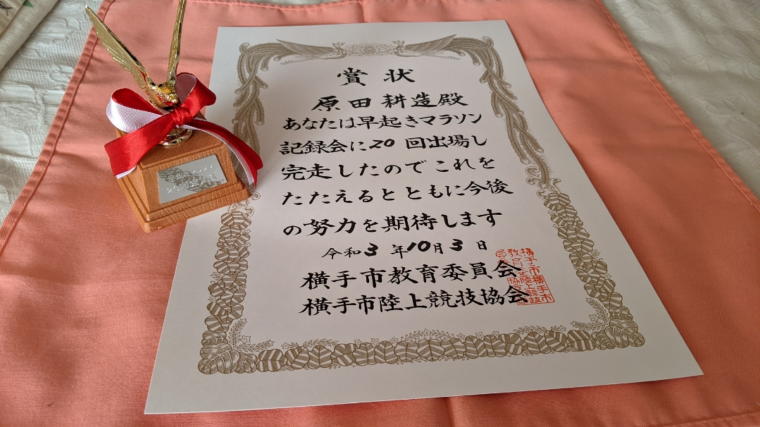 賞状
原田耕造殿
あなたは早起きマラソン
記録会に20回出場し
完走したのでこれを
たたえるとともに今後
の努力を期待します
令和3年10月3日
横手市教育委員会
横手市陸上競技協会